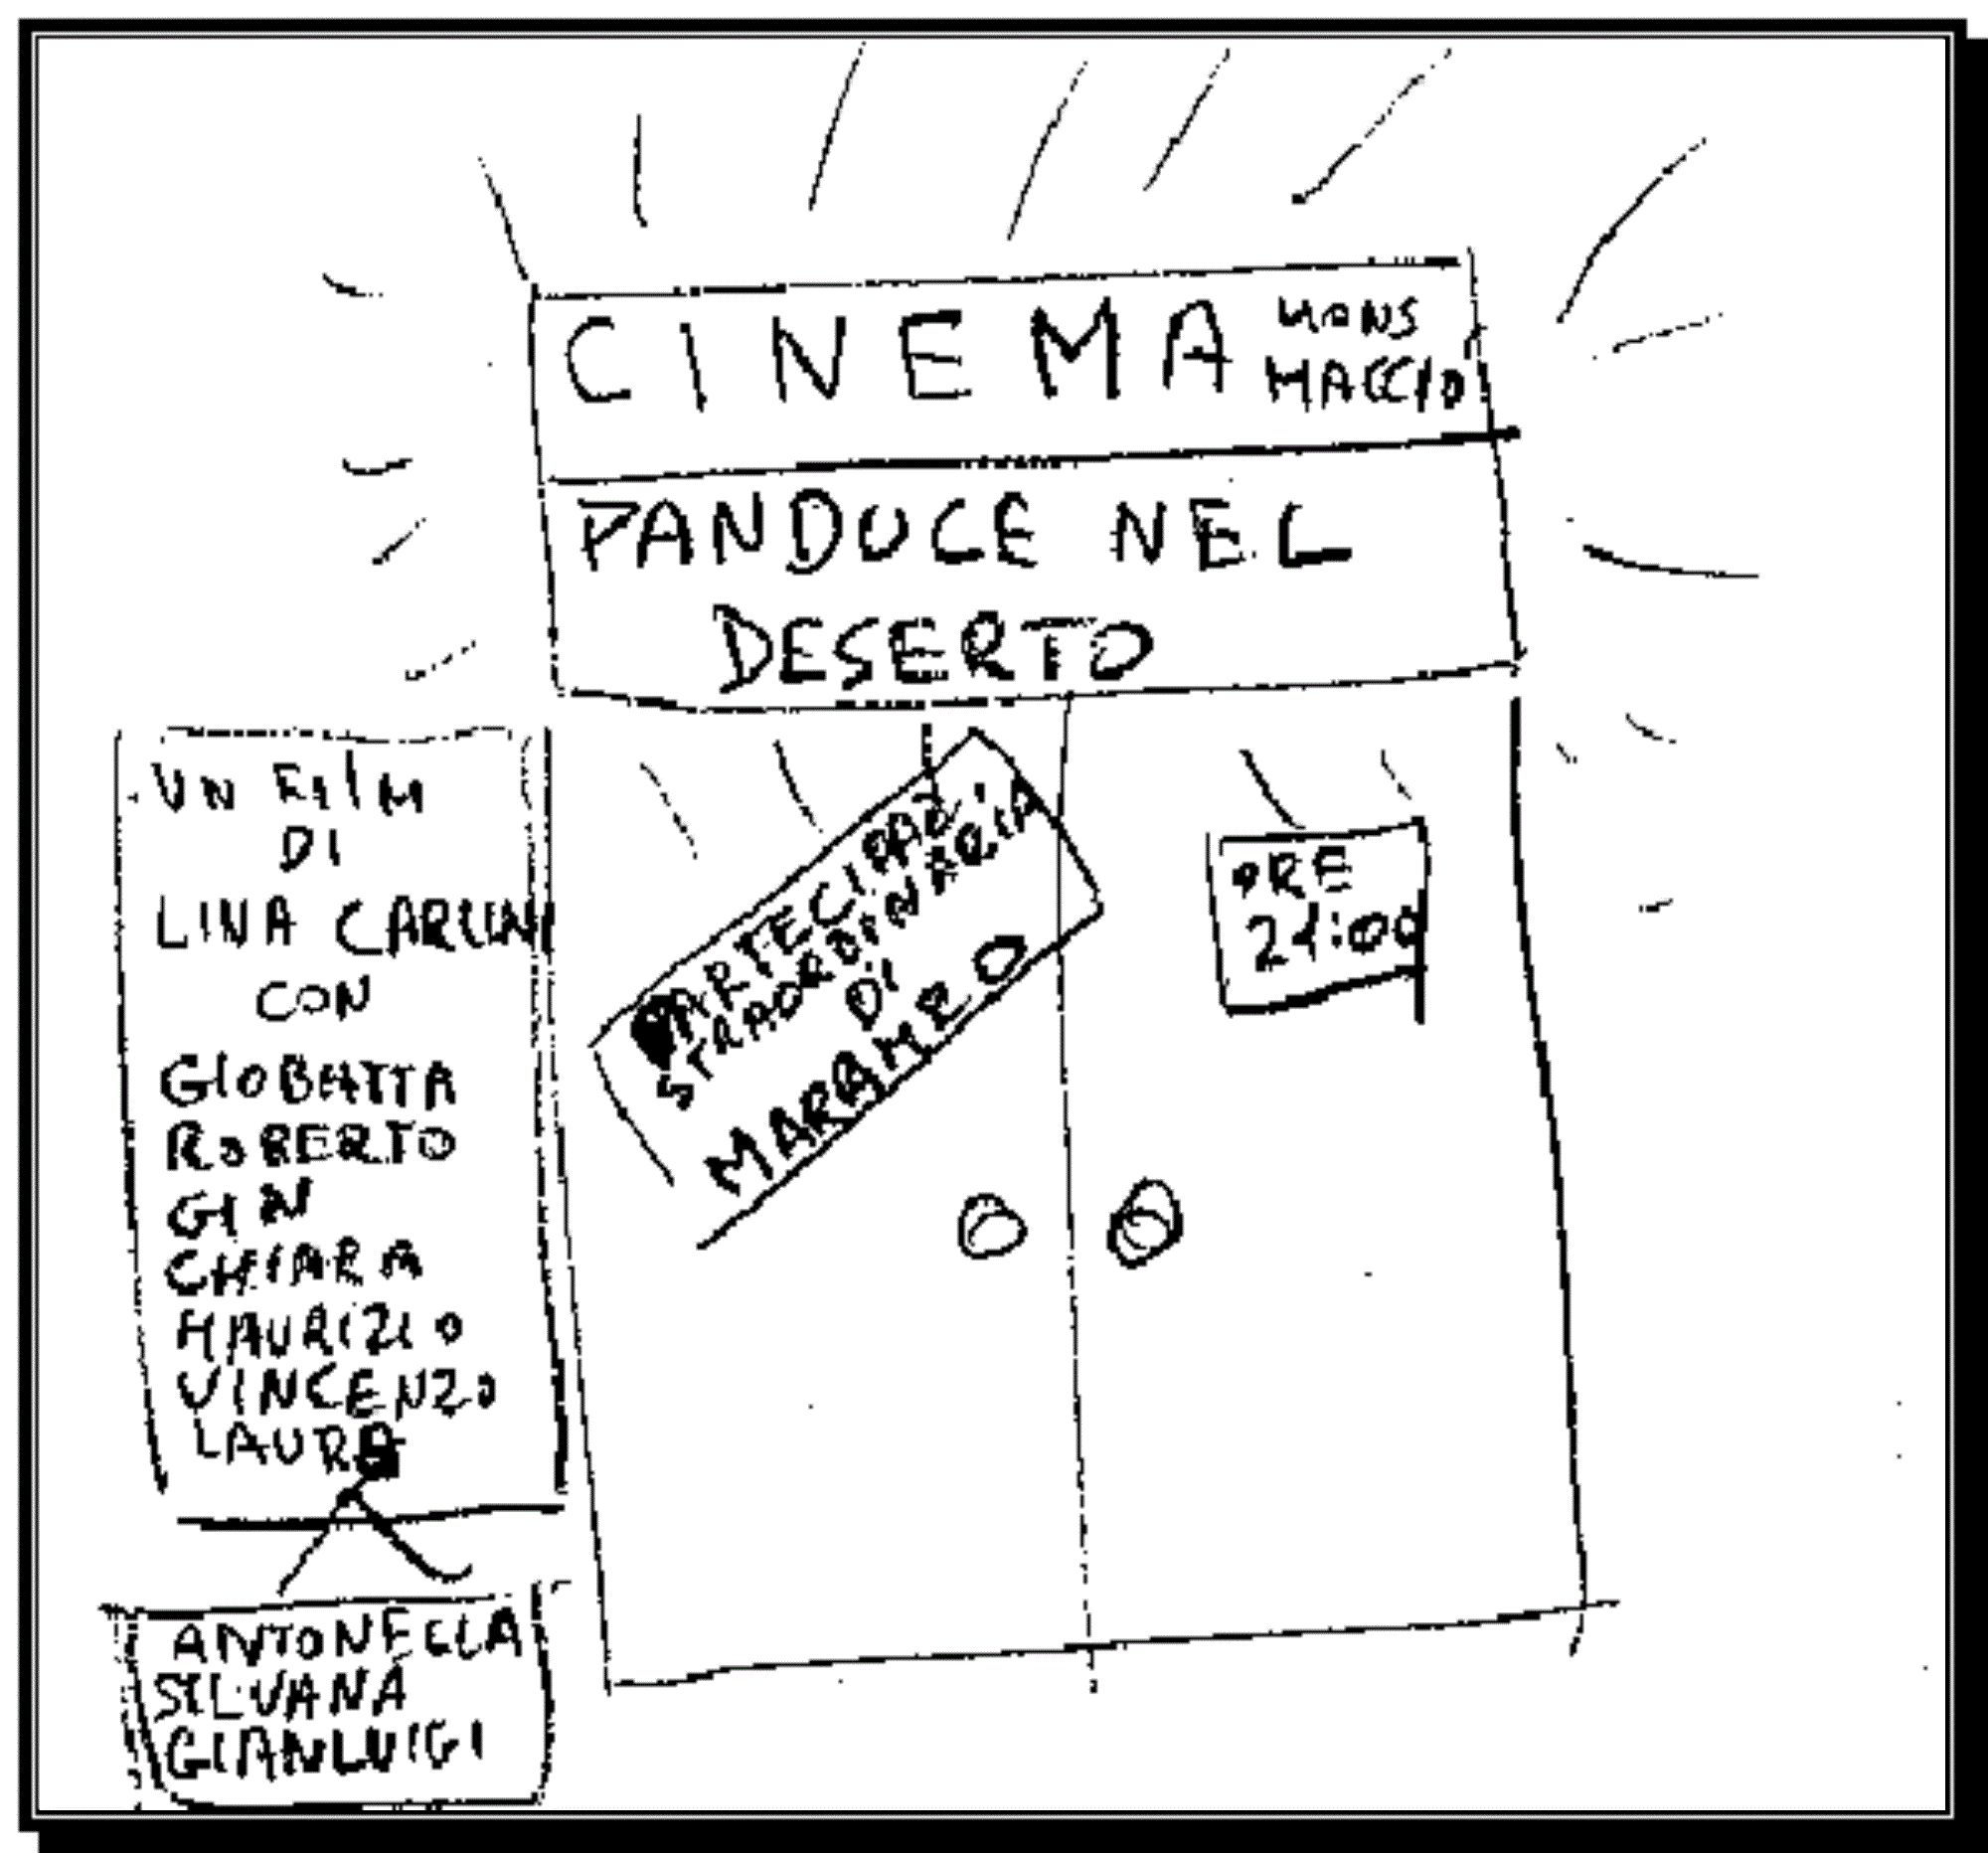 CINEMA MONS
MACCIO
PANDUCE NEL
DESERTO
UN FILM
DI
LINA CARLINI
CON
GIOBATTA
ROBERTO
GIN
CHIARA
MAURIZIO
VINCENZO
LAURA
ANTONELLA
SILVANA
GIANLUIGI
STRAORDINARIA
DI
MARAMEO
ORE
21:00